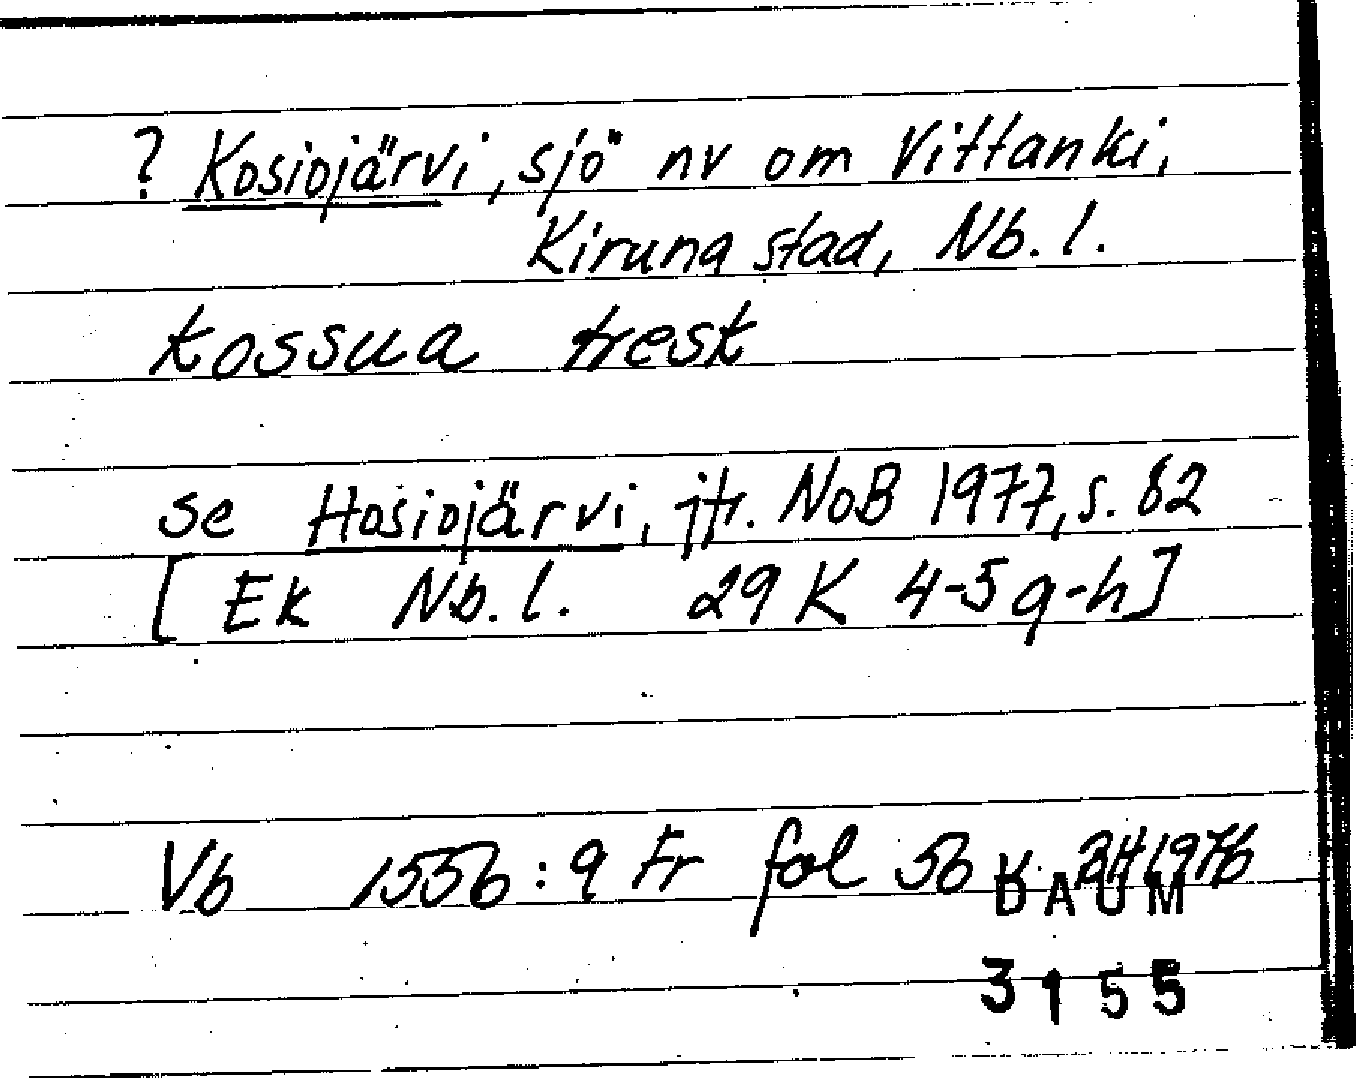 ? Kosiojärvi, sjö nv om Vittanki,
Kiruna stad, Nb. l.
kossua tresk
se Hosiojärvi, jfr. NoB 1977, s. 82
[Ek Nb. l. 29 K 4-5 g-h]
Vb 1556:9 Fr fol 56
DAUM
3155